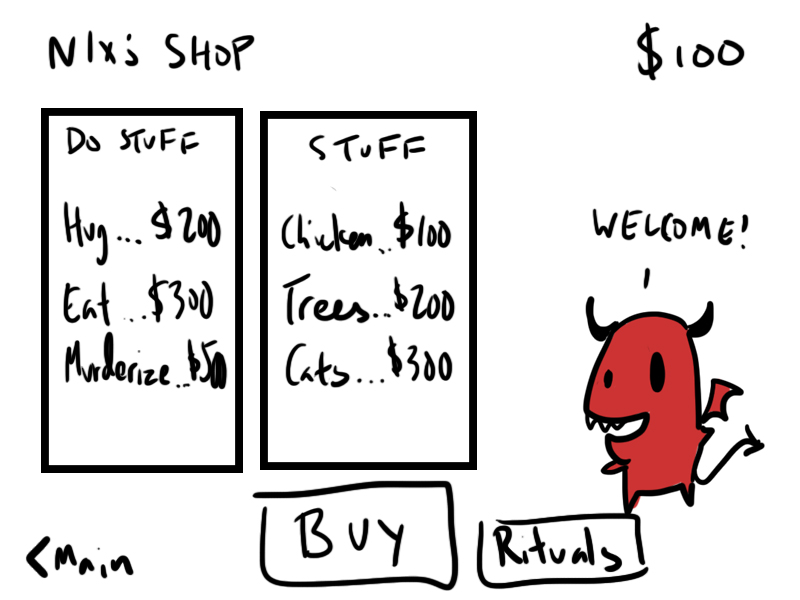 NIx's SHOP
$100
DO STUFF
Hug... $200
Eat ...$300
Murderize...$50
STUFF
Chicken...$100
Trees...$200
Cats...$300
WELCOME!
BUY
Rituals
<Main